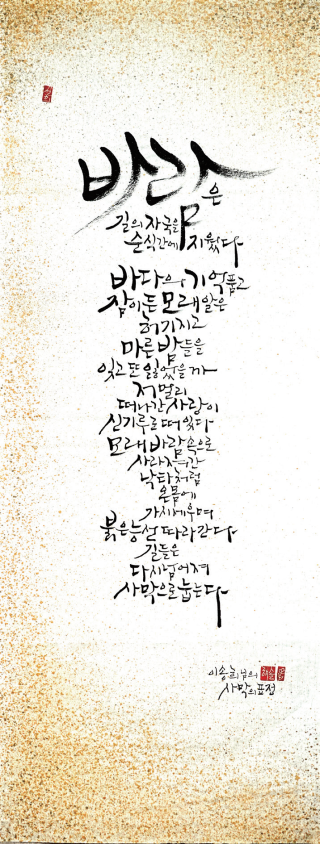 바람은
길의 자국을
순식간에 지웠다
바다의 기억품고
잠이든 모래알은
허기지고
마른 밤들을
잊고 또 잃었을까
저멀리
떠나간 사랑이
신기루로 떠있다
모래바람속으로
사라져간
낙타처럼
온몸에
가시세우며
붉은능선 따라간다
길들은
다시넘어져
사막으로 눕는다
이송희님의
사막의표정